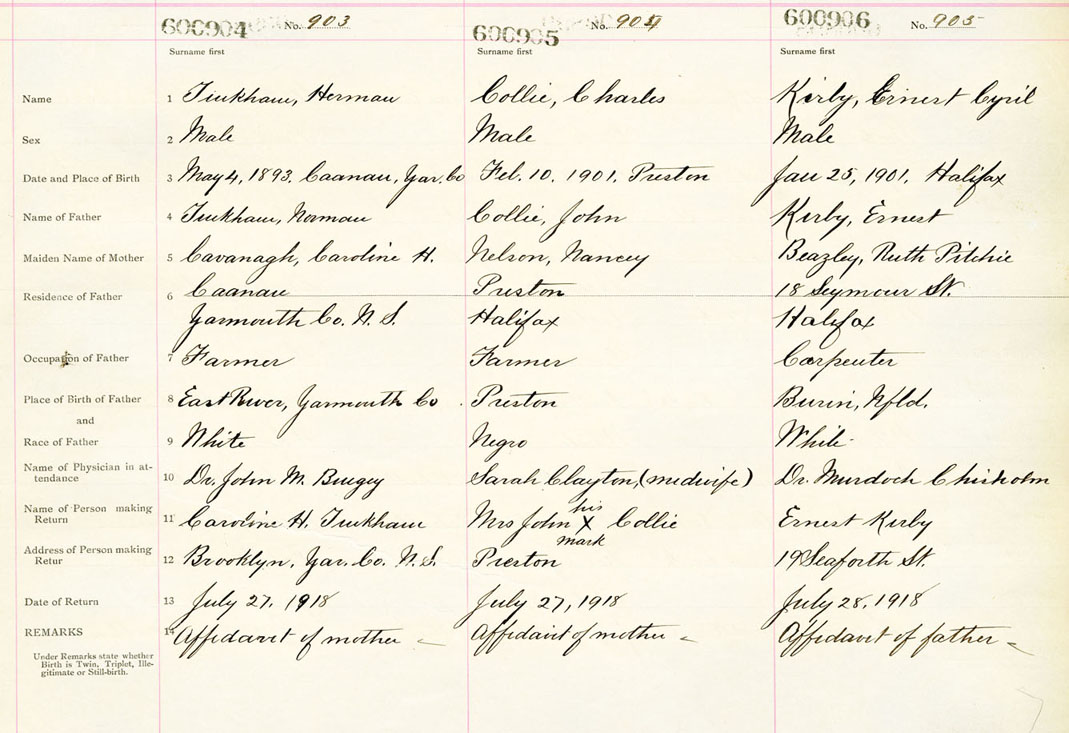 600904 No. 903 600905 No. 904 600906 No. 905
Surname first Surname first Surname first
Name 1 Tinkham, Herman Collie, Charles Kirby, Ernest Cyril
Sex 2 Male Male Male
Date and Place of Birth 3 May 4, 1893. Caanan, Yar. Co Feb. 10. 1901. Preston Jan 25, 1901. Halifax
Name of Father 4 Tinkham, Norman Collie, John Kirby, Ernest
Maiden Name of Mother 5 Cavanagh, Caroline H. Nelson, Nancey Beazley, Ruth Pitchie
Residence of Father 6 Caanan Preston 18 Seymour St.
Yarmouth Co. N. S. Halifax Halifax
Occupation of Father 7 Farmer Farmer Carpenter
Place of Birth of Father 8 East River, Yarmouth Co. Preston Burin, Nfld.
and
Race of Father 9 White Negro White
Name of Physician in at-
tendance 10 Dr. John M. Sarah Clayton, (midwife) Dr. Murdoch Chisholm
Name of Person making
Return 11 Caroline H. Tinkham Mrs John his X mark Collie Ernest Kirby
Address of Person making
Retur 12 Brooklyn, Yar. Co. N. S. Preston 19 Seaforth St.
Date of Return 13 July 27, 1918 July 27, 1918 July 28, 1918
REMARKS 14 Affidavit of mother Affidavit of mother Affidavit of father
Under Remarks state whether
Birth is Twin, Triplet, Ille-
gitimate or Still-birth.